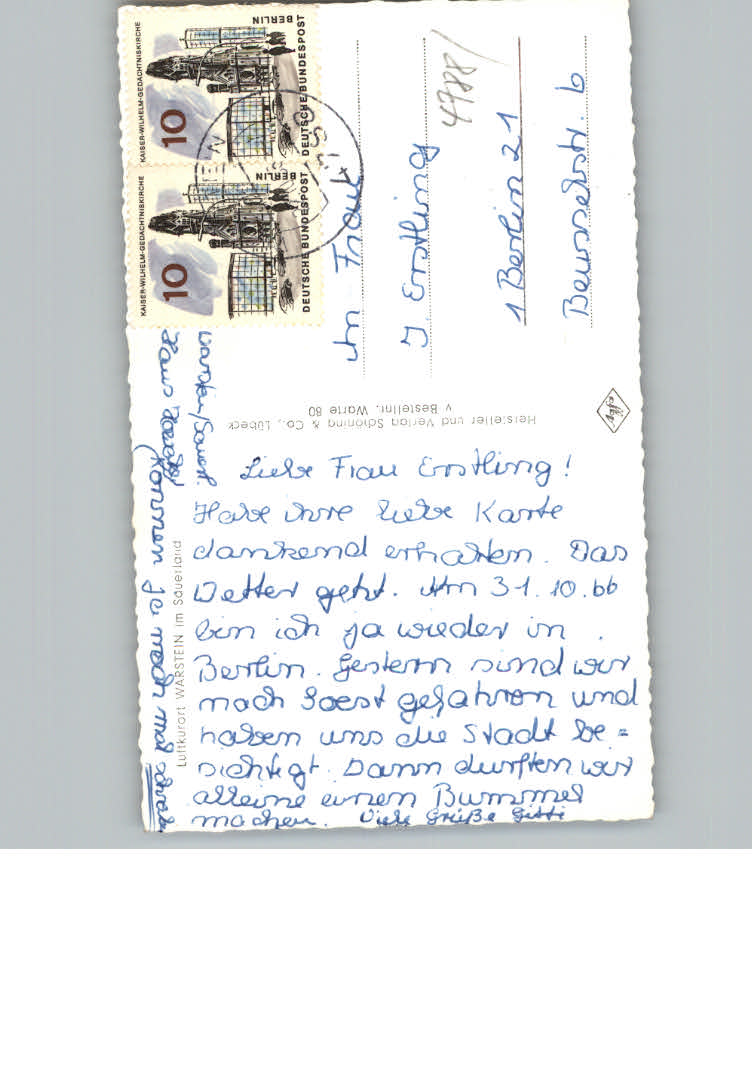 KAISER-WILHELM-GEDÄCHTNISKIRCHE
BERLIN
10
DEUTSCHE BUNDESPOST
KAISER-WILHELM-GEDÄCHTNISKIRCHE
BERLIN
10
DEUTSCHE BUNDESPOST
4788
An Frau
J Erstling
1 Berlin 21
Beusselstr. 6
Hersteller und Verlag Schöning & Co., Lübeck
v Bestellnr. Warte 80
Luftkurort WARSTEIN im Sauerland
Warstein/Sauerl.
Haus
Liebe Frau Erstling!
Habe ihre liebe Karte
dankend erhalten. Das
Wetter geht. Am 31.10.66
bin ich ja wieder in
Berlin. Gestern sind wir
nach Soest gefahren und
haben uns die Stadt be=
sichtigt. Dann durften wir
alleine einen Bummel
machen. Viele Grüße Gitti
Können ja noch mal schreiben